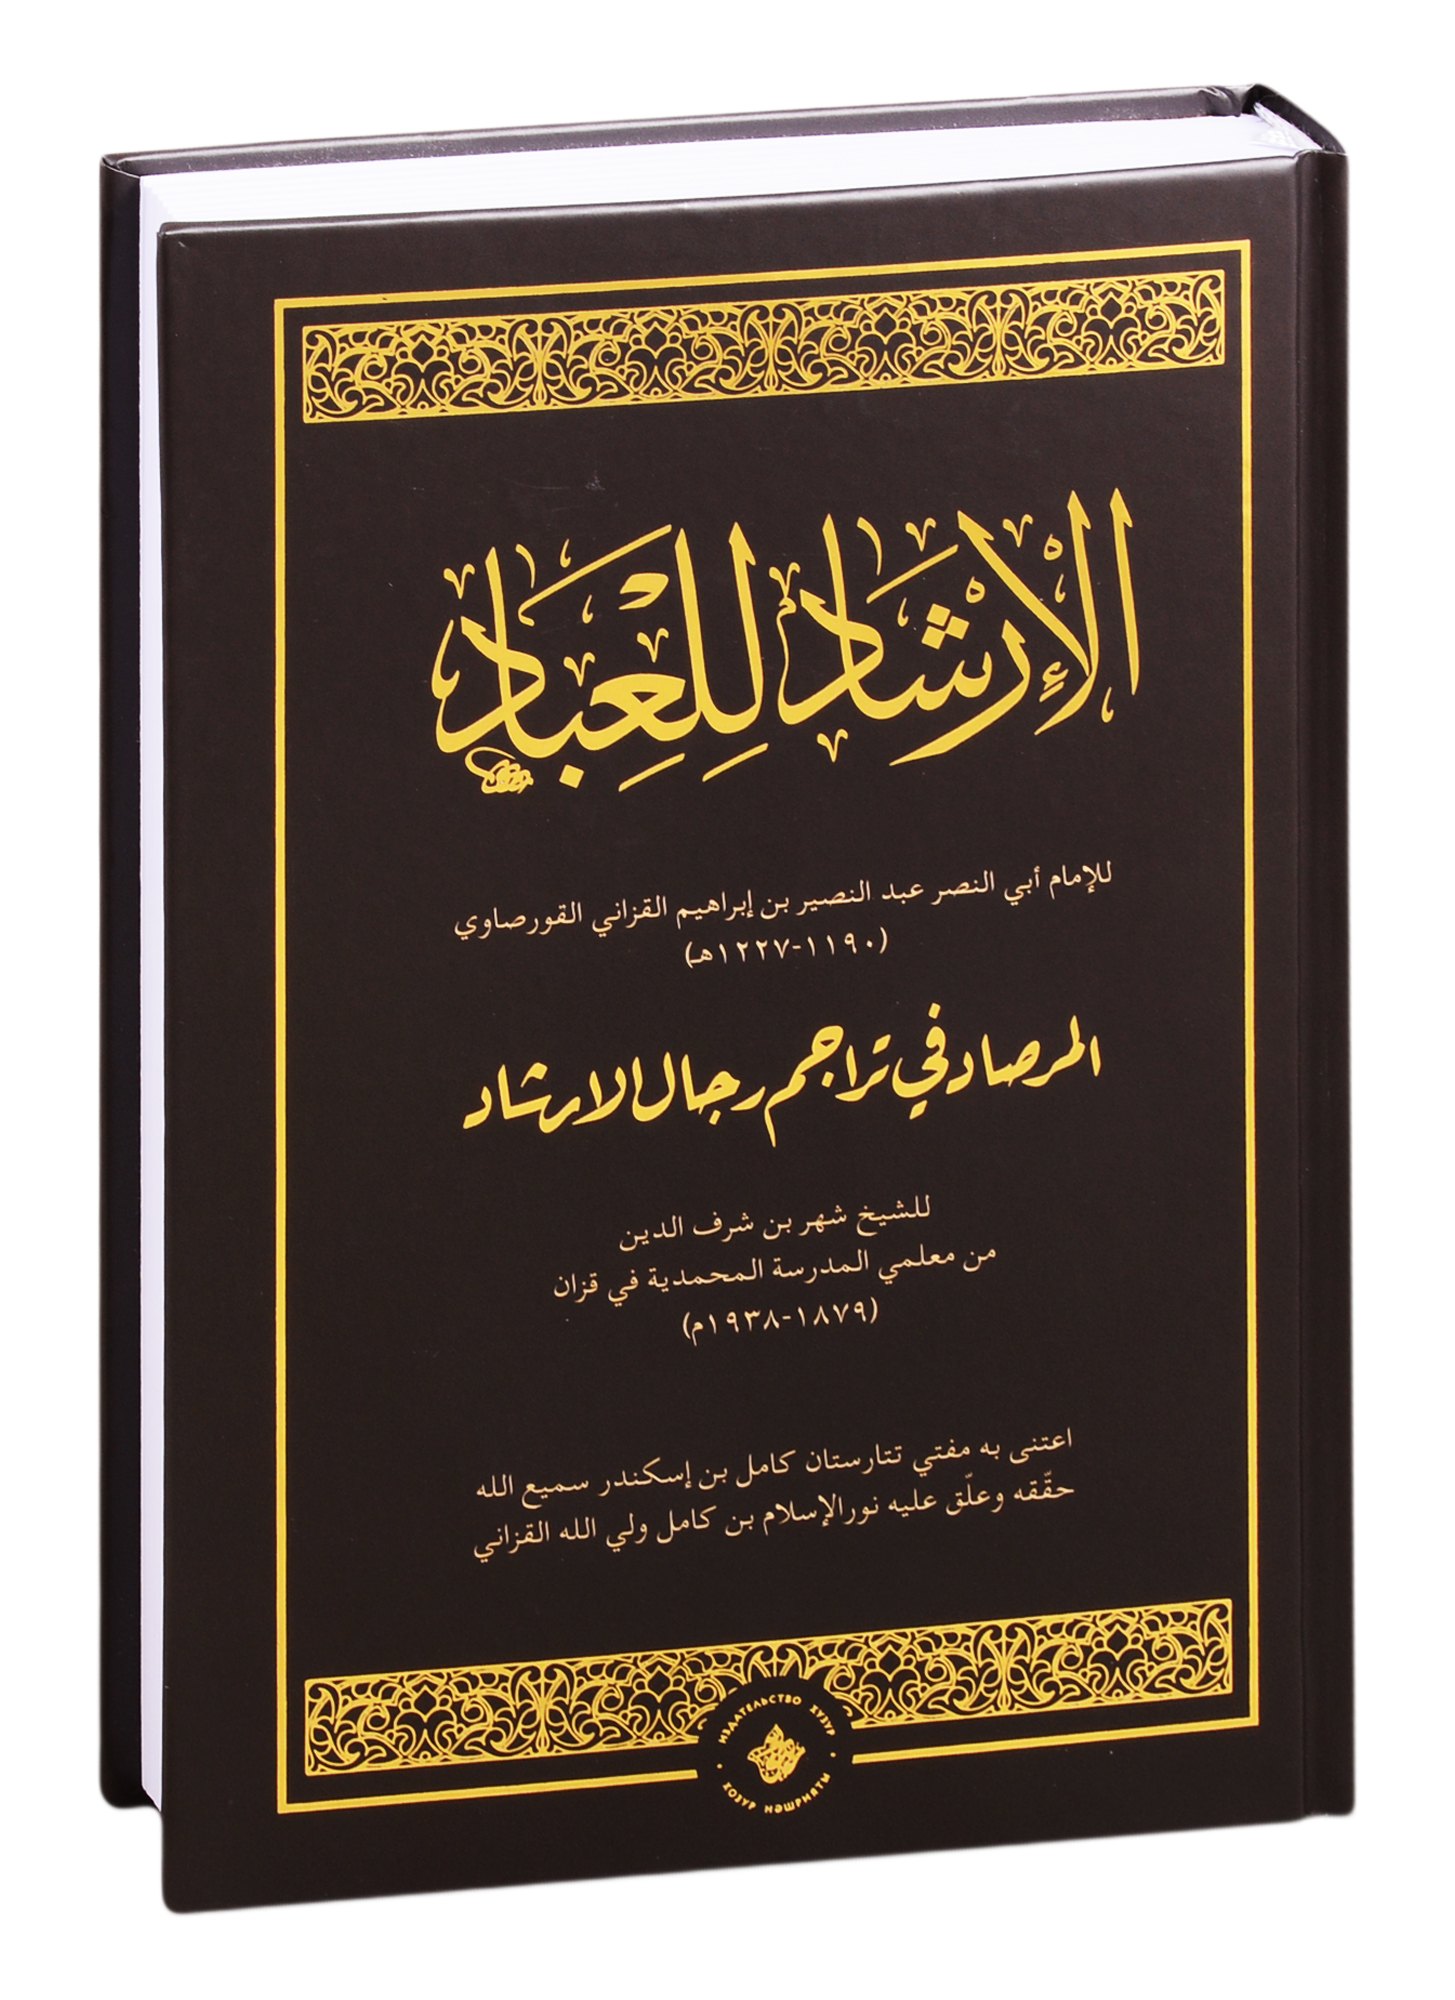 الإِرْشَادُ لِلْعِبَادِ
للإمام أبي النصر عبد النصير بن إبراهيم القزاني القورصاوي
(١١٩٠-١٢٢٧هـ)
المرصاد في تراجم رجال الارشاد
للشيخ شهر بن شرف الدين
من معلمي المدرسة المحمدية في قزان
(١٨٧٩-١٩٣٨م)
اعتنى به مفتي تتارستان كامل بن إسكندر سميع الله
حقّقه وعلّق عليه نورالإسلام بن كامل ولي الله القزاني
ИЗДАТЕЛЬСТВО ХУЗУР
ХОЗУР НӘШРИЯТЫ